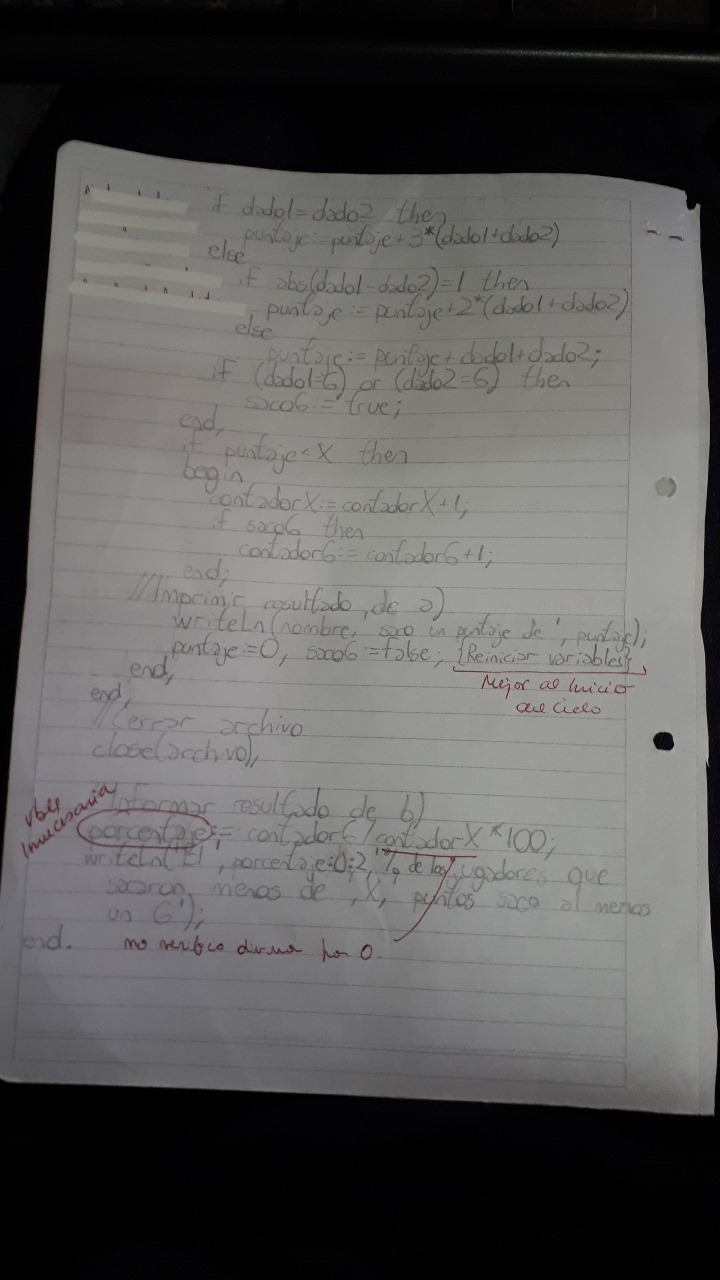 if dado1=dado2 then
puntaje:=puntaje+3*(dado1+dado2)
else
if abs(dado1-dado2)=1 then
puntaje:=puntaje+2*(dado1+dado2)
else
puntaje:=puntaje+dado1+dado2;
if (dado1=6) or (dado2=6) then
saco6:=true;
end;
if puntaje<X then
begin
contadorX:=contadorX+1;
if saco6 then
contador6:=contador6+1;
end;
//Imprimir resultado de a)
writeln(nombre, saco un puntaje de', puntaje);
puntaje:=0; saco6:=false; {Reiniciar variables}
end;
Mejor al inicio
del ciclo
end;
//Cerrar archivo
close(archivo);
//Informar resultado de b)
vble
innecesaria
porcentaje:= contador6/contadorX*100;
writeln('El', porcentaje:0:2, '% de los jugadores que
sacaron menos de ', X, ' puntos saco al menos
un 6');
end.
no verifico division por 0